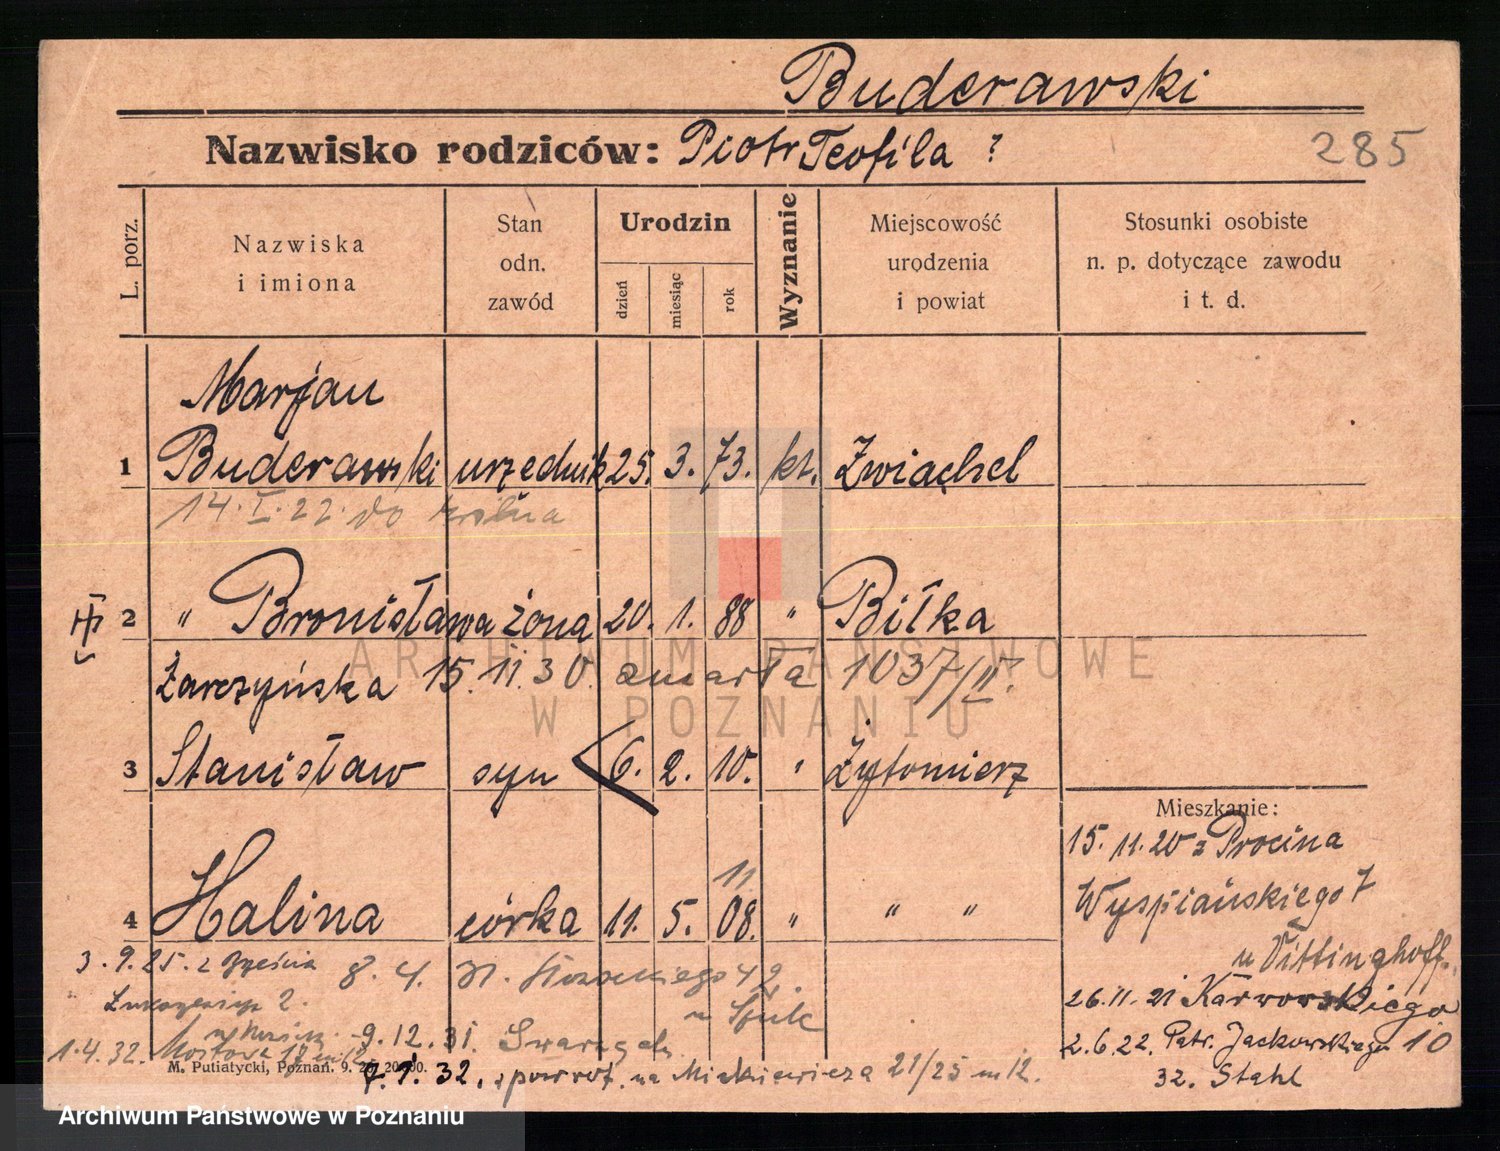 Buderawski
Nazwisko rodziców: Piotr Teofila ?
285
L. porz.
Nazwiska
i imiona
Stan
odn.
zawód
Urodzin
dzień
miesiąc
rok
Wyznanie
Miejscowość
urodzenia
i powiat
Stosunki osobiste
n. p. dotyczące zawodu
i t. d.
Marjan
1 Buderawski urzędnik 25. 3. 73. kt. Zwiachel
14. I. 22. do Wilna
2 " Bronisława żona 20. 1. 88 " Biłka
Żarczyńska 15. 11. 30. zmarła 1037/II.
3 Stanisław syn 6. 2. 10. " Żytomierz
Mieszkanie:
15. 11. 20 z Procina
Wyspiańskiego 7
u Vittinghoff.
11
4 Halina córka 11. 5. 08. " " "
3. 9. 25. z
8. 4. 42.
2.
u
26. 11. 21 Karwowskiego
10
9. 12. 31. Swarzędz
2. 6. 22. Patr. Jackowskiego
32. Stahl
1. 4. 32. Mostowa
M. Putiatycki, Poznań. 9.
7. 1. 32. z powrot. na Mickiewicza 21/25 m 12.
ARCHIWUM PAŃSTWOWE
W POZNANIU
Archiwum Państwowe w Poznaniu